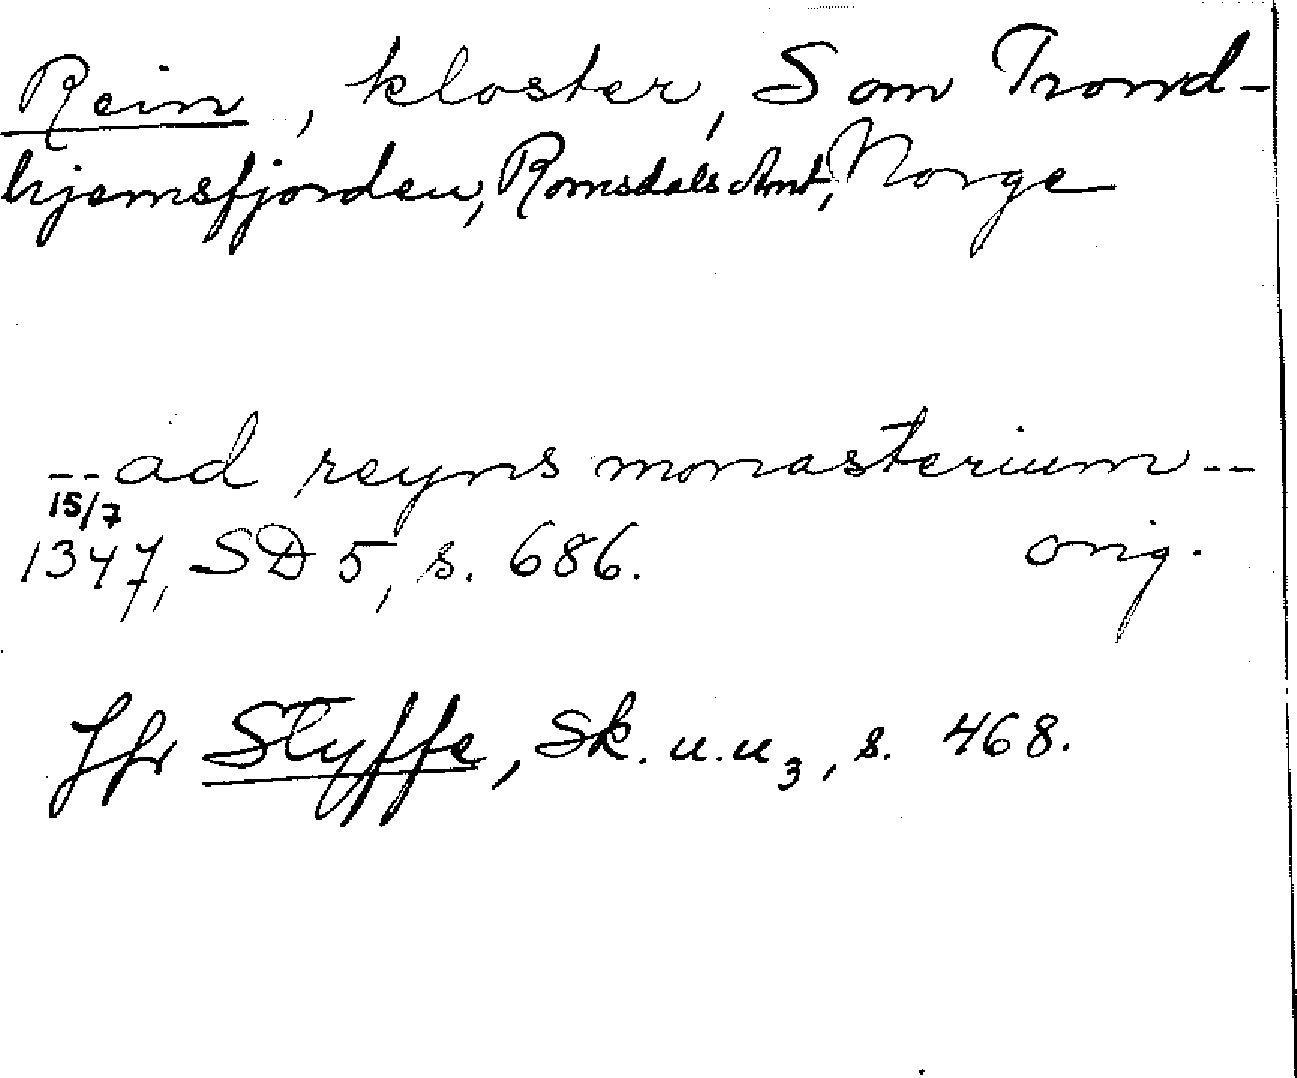 Rein, kloster, S om Trond-
hjemsfjorden, Romsdals Amt, Norge
-- ad reyns monasterium --
15/7
1347, SD 5, s. 686. orig.
Jfr Styffe, Sk. u. u3, s. 468.